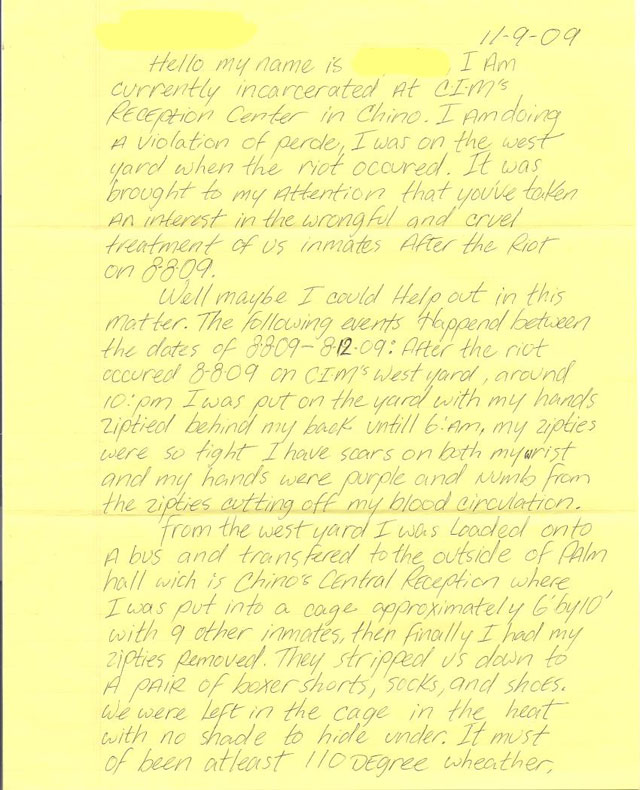 11-9-09
Hello my name is , I Am
currently incarcerated At C.I.M's
Reception Center in Chino. I Am doing
A violation of perole, I was on the west
yard when the riot occured. It was
brought to my Attention that you've taken
An interest in the wrongful and cruel
treatment of us inmates After the Riot
on 8-8-09.
Well maybe I could Help out in this
matter. The following events Happend between
the dates of 8-8-09 - 8-12-09: After the riot
occured 8-8-09 on C.I.M's west yard, around
10:pm I was put on the yard with my hands
ziptied behind my back untill 6:Am, my zipties
were so tight I have scars on both my wrist
and my hands were purple and numb from
the zipties cutting off my blood circulation.
From the west yard I was Loaded onto
A bus and transfered to the outside of PAlm
hall wich is Chino's Central Reception where
I was put into a cage approximately 6' by 10'
with 9 other inmates, then finally I had my
zipties Removed. They stripped us down to
A PAIR of boxer shorts, socks, and shoes.
We were Left in the cage in the heat
with no shade to hide under. It must
of been atleast 110 DEgree wheather,